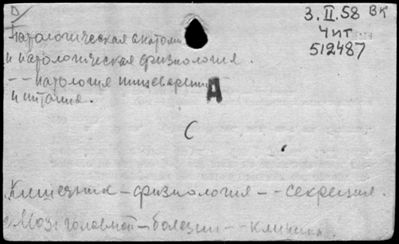 D
3. II. 58 ВК
Чит
512487
Патологическая анатоми
и патологическая физиология.
-- патология пищеварения
и питания.
А
С
Кишечник – физиология -- секреция.
Мозг головной – болезни -- клиника.